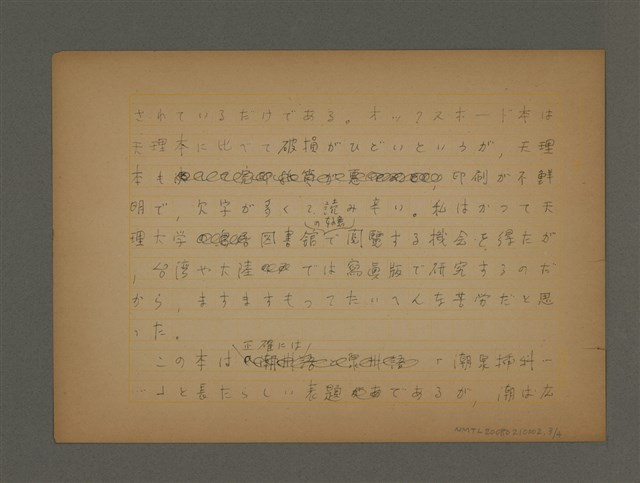 されているだけである。オックスホード本は
天理本に比べて破損がひどいというが、天理
本も、印刷が不鮮
明で、欠字が多くて読み辛い。私はかつて天
理大学図書館の好意で閲覧する機会を得たが
、台湾や大陸では写真版で研究するのだ
から、ますますもってたいへんな苦労だと思
った。
この本は正確には「潮泉挿科一
…」と長たらしい表題であるが、潮は広
NMTL20080210002.3/4